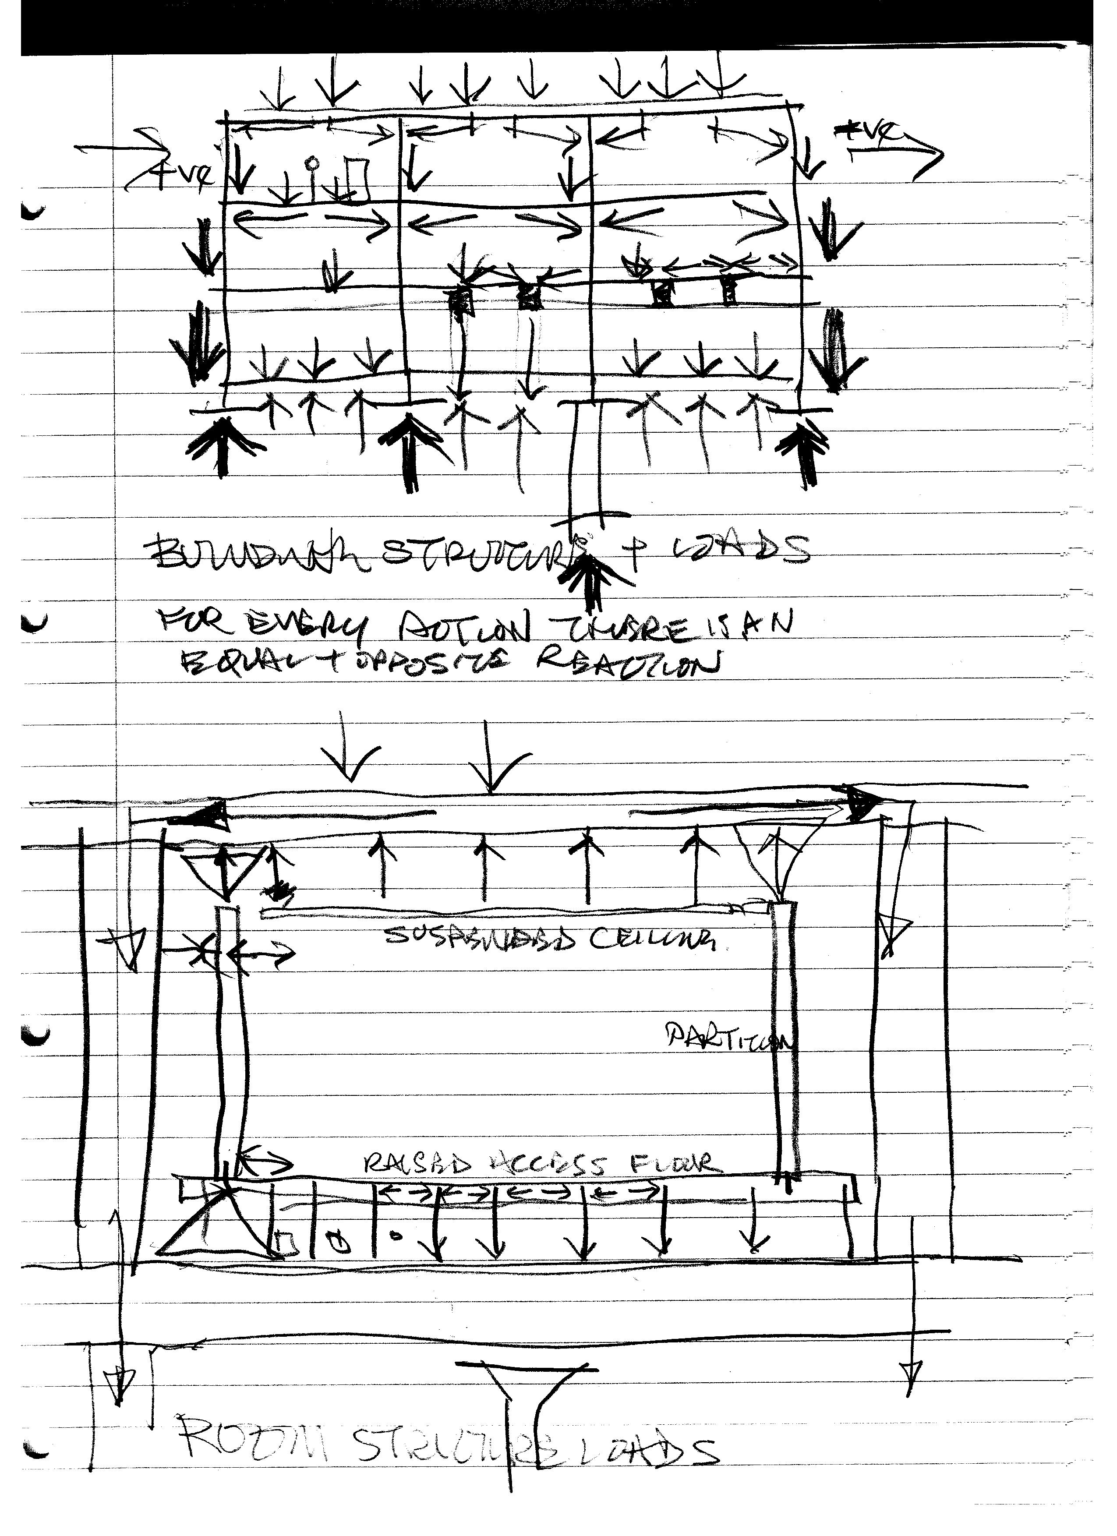 +ve
+ve
BUILDING STRUCTURE + LOADS
FOR EVERY ACTION THERE IS AN
EQUAL + OPPOSITE REACTION
SUSPENDED CEILING
PARTITION
RAISED ACCESS FLOOR
ROOM STRUCTURE LOADS